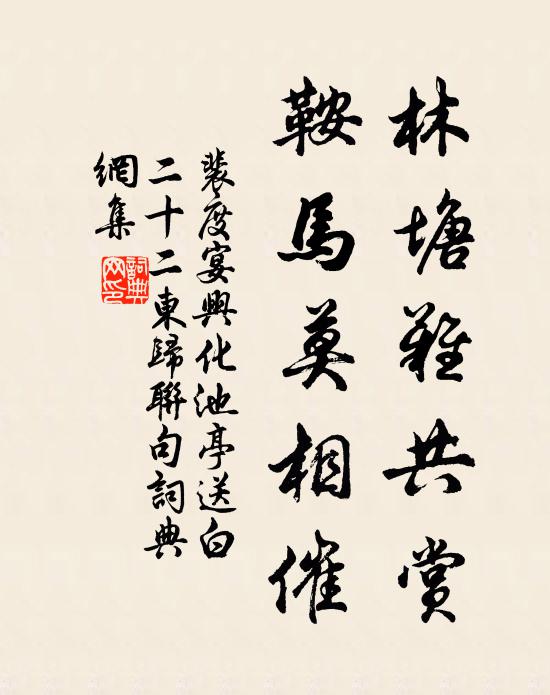 林塘難共賞
鞍馬莫相催
裴度宴興化池亭送白
二十二東歸聯句詞典
網集
詞典網印